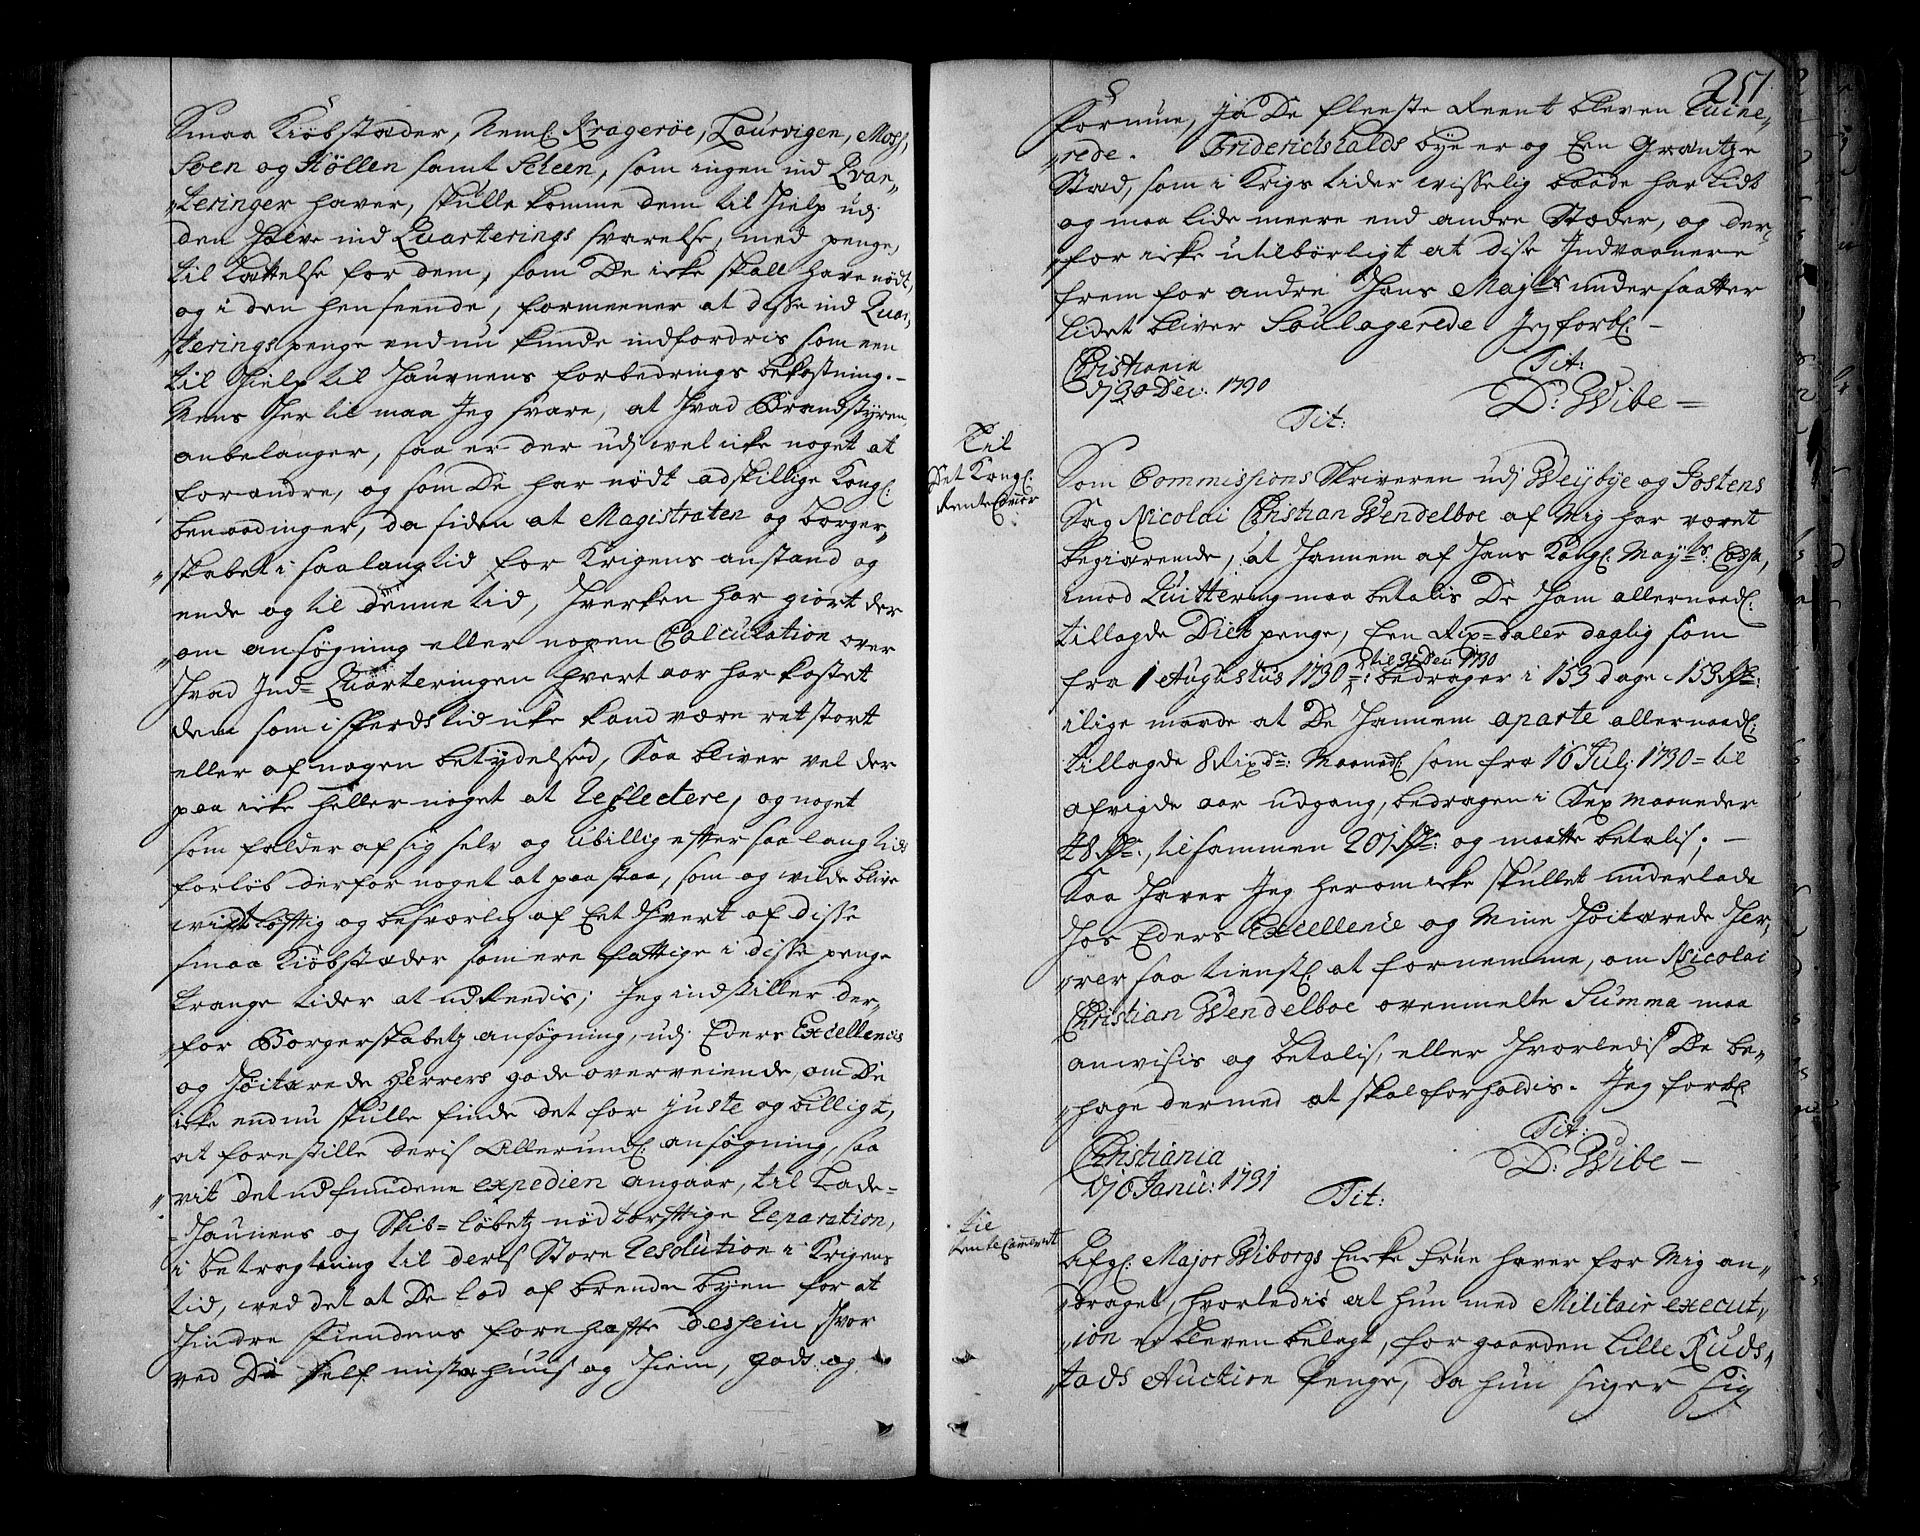 Smaa Kiöbstæder, Neml: Kragerøe, Laurvigen, Moss,
Soen og Höllen samt Scheen, som ingen ind Qvar„
„teringer haver, skulle komme dem til Hielp udj
den Halve ind Quarterings svarelse, med penge,
til Lættelse for dem, som De icke skall have nödt,
og i den henseende, formeener at disse ind Quar„
„terings penge endnu kunde indfordris som een
til Hielp til Haunens forbedrings bekostning. –
Mens Her til maa Jeg svare, at Hvad Brandstyren
anbelanger, saa er der udj vel icke noget at
forandre, og som De har nödt adskillige Kongl:
benaadinger, da siden at Magistraten og borger„
„skabet i saa lang tid for Krigens anstand og
ende og til denne tid, Hverken har giort der
„om ansøgning eller nogen Calculation over
Hvad Ind= Quarteringen hvert aar har kostet
dem som i Freds tid icke kand være ret stort
eller af nogen betydelsed, Saa bliver vel der
paa icke heller noget at Reflectere, og noget
som falder af sig selv og Ubillig efter saa lang tids
forløb derfor noget at paastaa, som og vilde blive
vidtløftig og besværlig af Eet Hvert af disse
smaa Kiöbstæder som ere fattige i disse penge
trange tider at udreedis; Jeg indstiller der„
„for Borgerskabetz ansøgning, udj Eders Excellencis
og Höitærede Herrers gode overveiende, om De
icke endnu skulle finde det for juste og billigt,
at forestille deris Allerundl: ansøgning, saa
„vit det udfundene expedien angaar, til Lade=
=Haunens og Skib=løbetz nødtørftige Reparation,
i betragtning til deris Store Resolution i Krigens
tid, ved det at De lod af brende byen for at
Hindre Fiendens forehafte Dessein Hvor
ved De self miste huus og Hiem, gods og
251.
formue, ja De fleeste Reent bleven Ruine„
„rede. Friderichshalds bye er og Een Grantze
Stad, som i Krigs tider visselig baade har lidt
og maa lide meere end andre Stæder, og der„
„for icke utilbörligt at disse Indvaanere
frem for andre Hans Mayts undersaatter
lidet bliver Soulagerede Jeg forbl: –
Christiania
d 30 Dec: 1730
Tit:
D: Wibe =
Tit:
Til
Det Kongl:
Rente Camer
Som Commissions Skriveren udj Weybye og Tostens
Sag Nicolai Christian Wendelboe af Mig har været
begiærende, at Hannem af Hans Kongl: Mayts: Cassa,
imod Quittering maa betalis De Ham allernaadl:
tillagde Diet penge, Een Rix=daler daglig som
fra 1 Augustus 1730 =: til 31 Dec: 1730 bedrager i 153 dage – 153 Rdr:
ilige maade at De Hannem aparte allernaadl:
tillagde 8 Rixdr: Maanedl: som fra 16 Julj 1730 = til
afvigde aar udgang, bedragen i Sex Maaneder
48 Rdr:, tilsammen 201 Rdr: og maatte betalis; –
Saa Haver Jeg herom icke skullet underlade
Hos Eders Excellence og Mine Höitærede Her„
„rer saa tienstl: at fornemme, om Nicolai
Christian Wendelboe ovenmelte Summa maa
anvisis og betalis, eller Hvorledis De be„
„hage dermed at skal forholdis. Jeg forbl:
Christiania
d 6 Janu: 1731
Tit:
D: Wibe –
Tit:
Til
Rente Cameret
Afg: Major Wiborgs Encke Frue haver for Mig an„
„draget, hvorledis at hun med Militair execut„
„ion er bleven belagt, for gaarden Lille Ruds„
„tads Auction Penge, Da hun siger sig